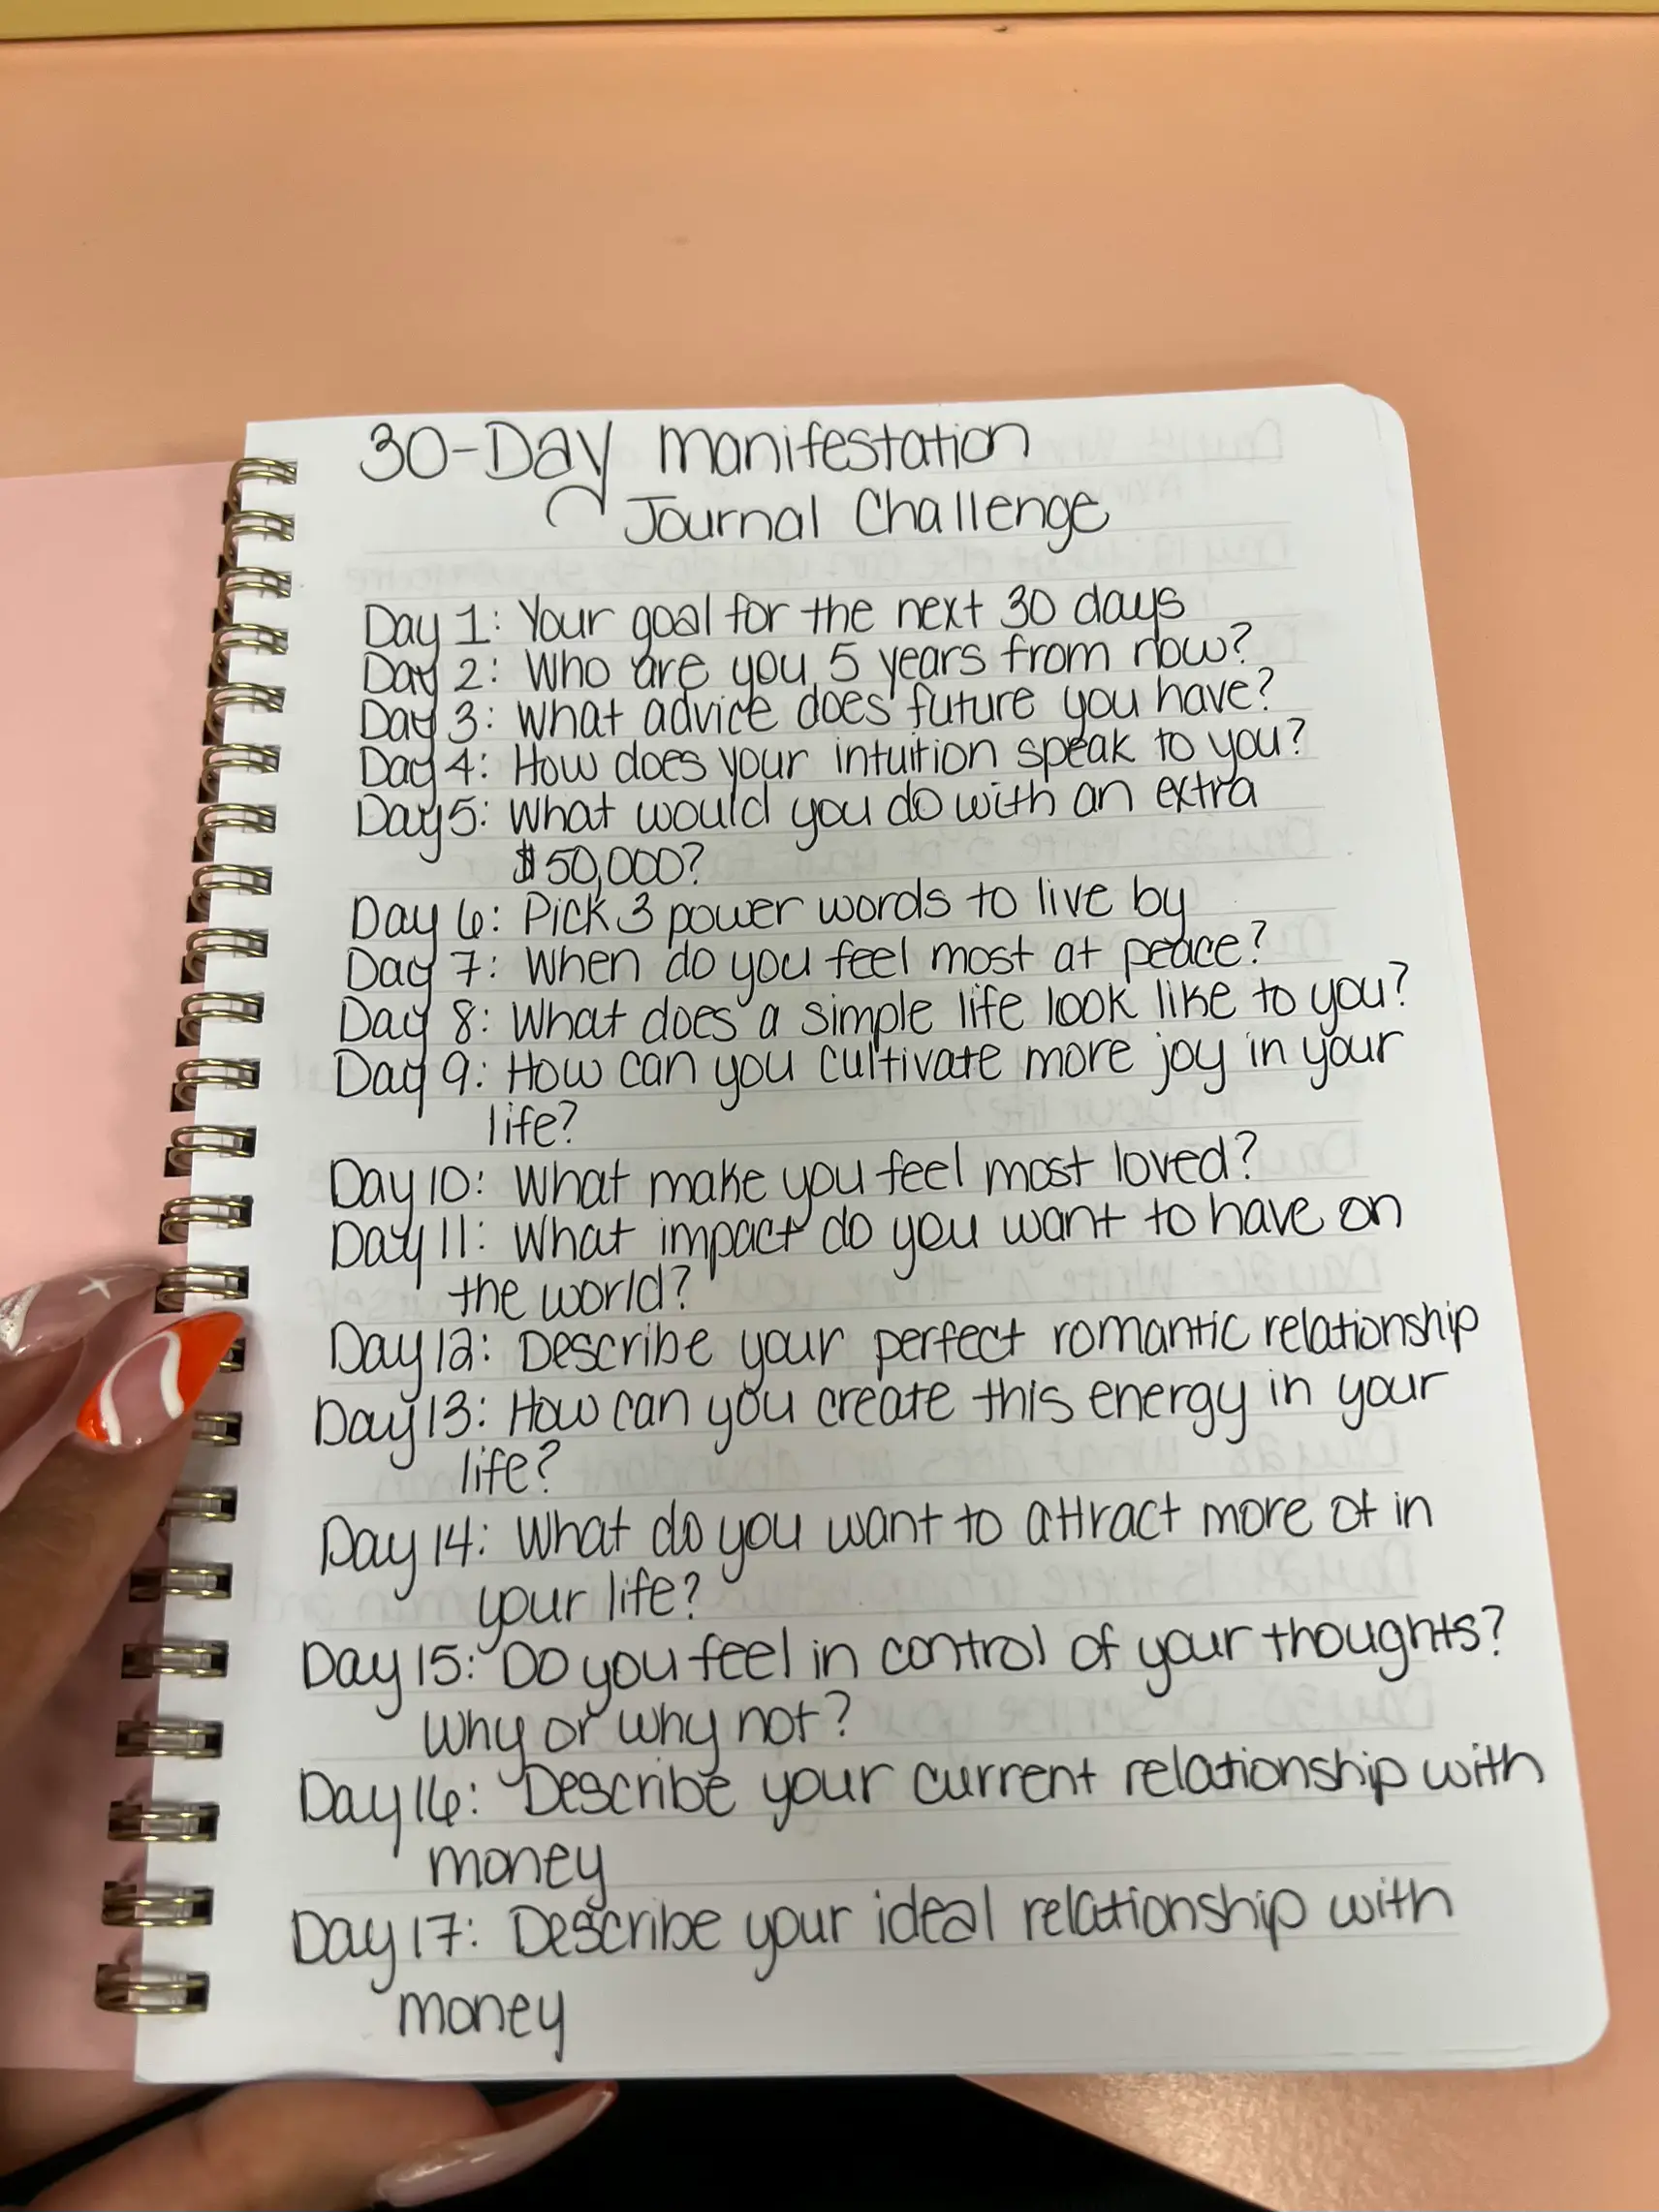 30-Day Manifestation
Journal Challenge
Day 1: Your goal for the next 30 days
Day 2: Who are you 5 years from now?
Day 3: What advice does future you have?
Day 4: How does your intuition speak to you?
Day 5: What would you do with an extra
$50,000?
Day 6: Pick 3 power words to live by
Day 7: When do you feel most at peace?
Day 8: What does a simple life look like to you?
Day 9: How can you cultivate more joy in your
life?
Day 10: What make you feel most loved?
Day 11: What impact do you want to have on
the world?
Day 12: Describe your perfect romantic relationship
Day 13: How can you create this energy in your
life?
Day 14: What do you want to attract more of in
your life?
Day 15: Do you feel in control of your thoughts?
Why or why not?
Day 16: Describe your current relationship with
money
Day 17: Describe your ideal relationship with
money